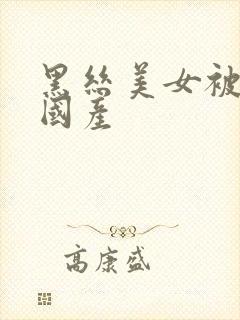 黑丝美女被
國産
高康盛